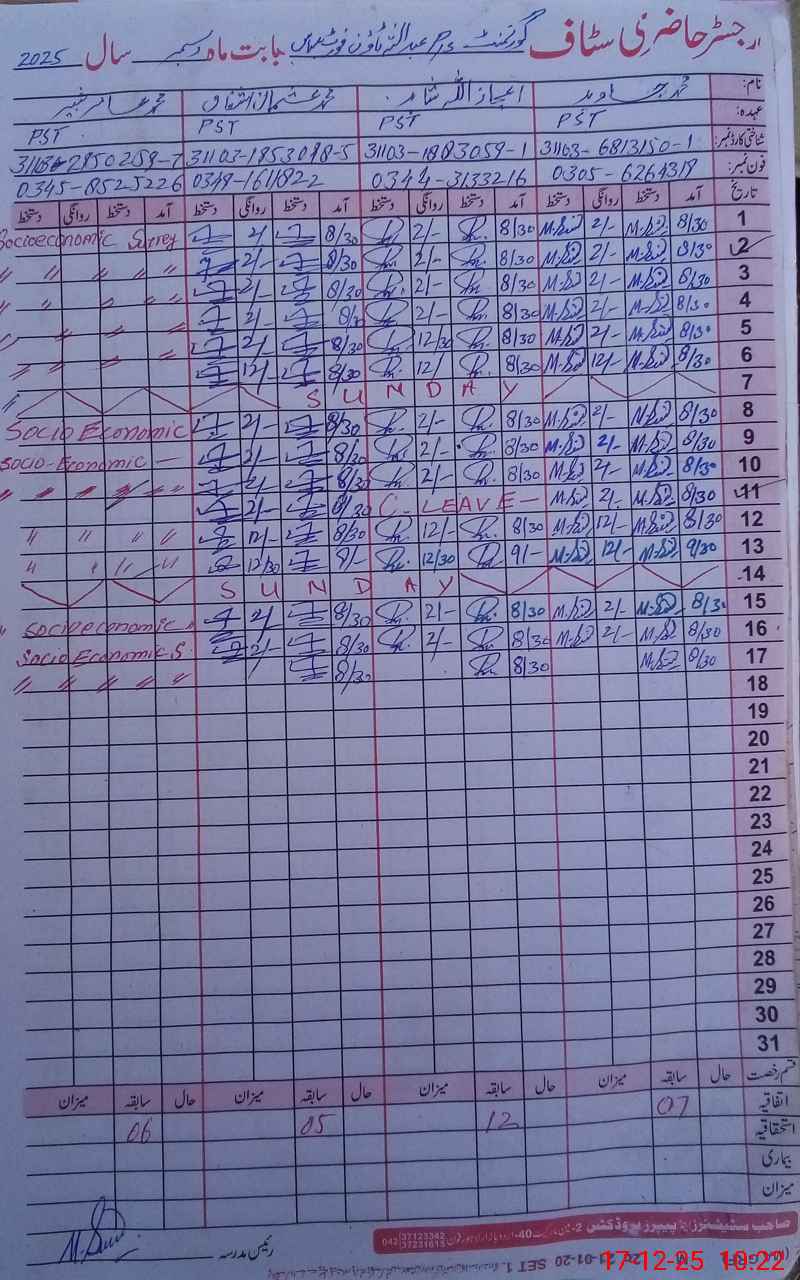 رجسٹر حاضری سٹاف گورنمنٹ عبداللہ ٹاؤن فورٹ عباس بابت ماہ دسمبر سال 2025
نام: محمد جاوید اعجاز اللہ شاہد محمد عثمان اشفاق محمد عامر شبیر
عہدہ: PST PST PST PST
شناختی کارڈ نمبر: 31103-6813150-1 31103-1883059-1 31103-1853048-5 31103-2850259-7
فون نمبر: 0305-6264319 0344-3133216 0349-1611822 0345-8525226
تاریخ آمد دستخط روانگی دستخط آمد دستخط روانگی دستخط آمد دستخط روانگی دستخط آمد دستخط روانگی دستخط
1 8/30 2/- 8/30 2/- 8/30 2/- Socioeconomic Survey
2 8/30 2/- 8/30 2/- 8/30 2/- " " " " "
3 8/30 2/- 8/30 2/- 8/30 2/- " " " " "
4 8/30 2/- 8/30 2/- 8/30 2/- " " " " "
5 8/30 2/- 8/30 12/30 8/30 2/- " " " " "
6 8/30 12/- 8/30 12/ 8/30 12/-
7 SUNDAY
8 8/30 2/- 8/30 2/- 8/30 2/- Socio Economic
9 8/30 2/- 8/30 2/- 8/30 2/- Socio-Economic —
10 8/30 2/- 8/30 2/- 8/30 2/- " " " " "
11 8/30 2/- C. LEAVE – 8/30 2/-
12 8/30 12/- 8/30 12/- 8/30 12/- " " " "
13 9/30 12/- 9/- 12/30 9/- 12/30 " " " "
14 SUNDAY
15 8/30 2/- 8/30 2/- 8/30 2/- " Socioeconomic "
16 8/30 2/- 8/30 2/- 8/30 2/- Socio Economic S.
17 8/30 8/30 8/30 " " " " "
18
19
20
21
22
23
24
25
26
27
28
29
30
31
قسم رخصت حال سابقہ میزان حال سابقہ میزان حال سابقہ میزان حال سابقہ میزان
اتفاقیہ 07 12 05 06
استحقاقیہ
بیماری
میزان
صاحب سٹیشنرز اینڈ پیپرز پروڈکشن
042 37123342
37231615
رئیس مدرسہ
17-12-25 10:22